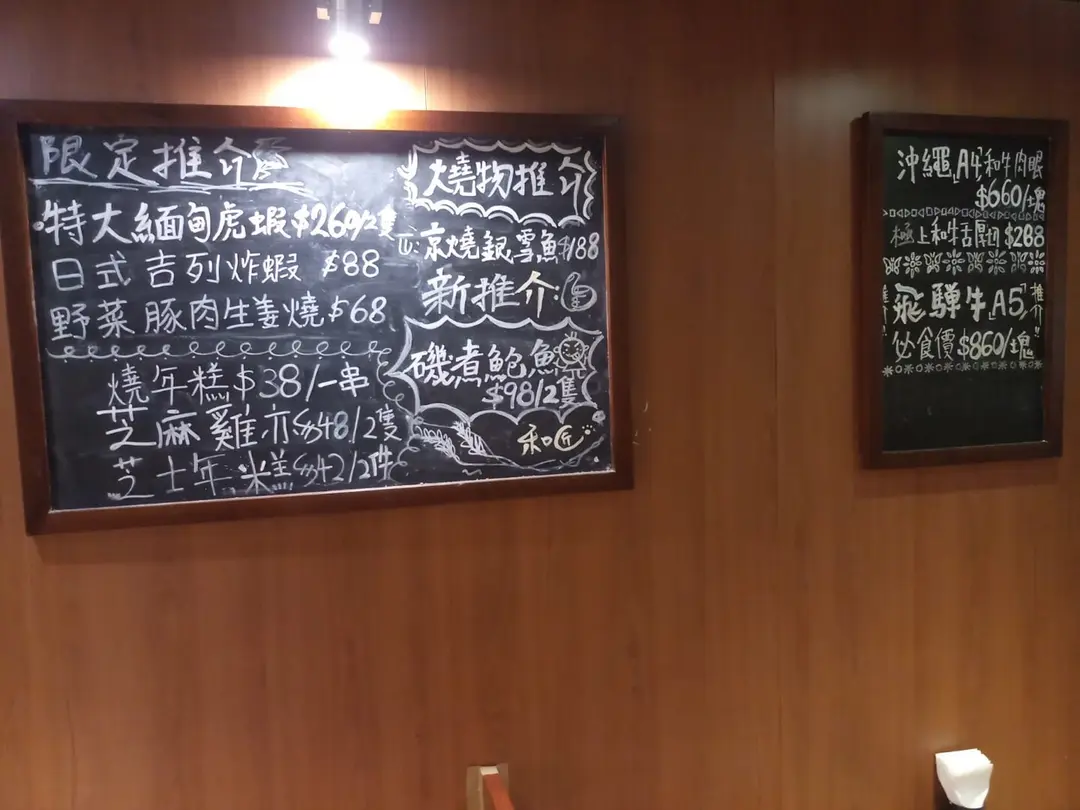 限定推介
特大緬甸虎蝦$260/2隻
日式吉列炸蝦 $88
野菜豚肉生姜燒$68
燒年糕$38/一串
芝麻雞亦$48/2隻
芝士年糕$42/2件
燒物推介
京燒銀雪魚$188
新推介:
磯煮鮑魚
$98/2隻
和匠
沖繩「A4」和牛肉眼
$660/塊
極上和牛舌厚切 $288
推介 飛驒牛「A5」推介"
必食價$860/塊